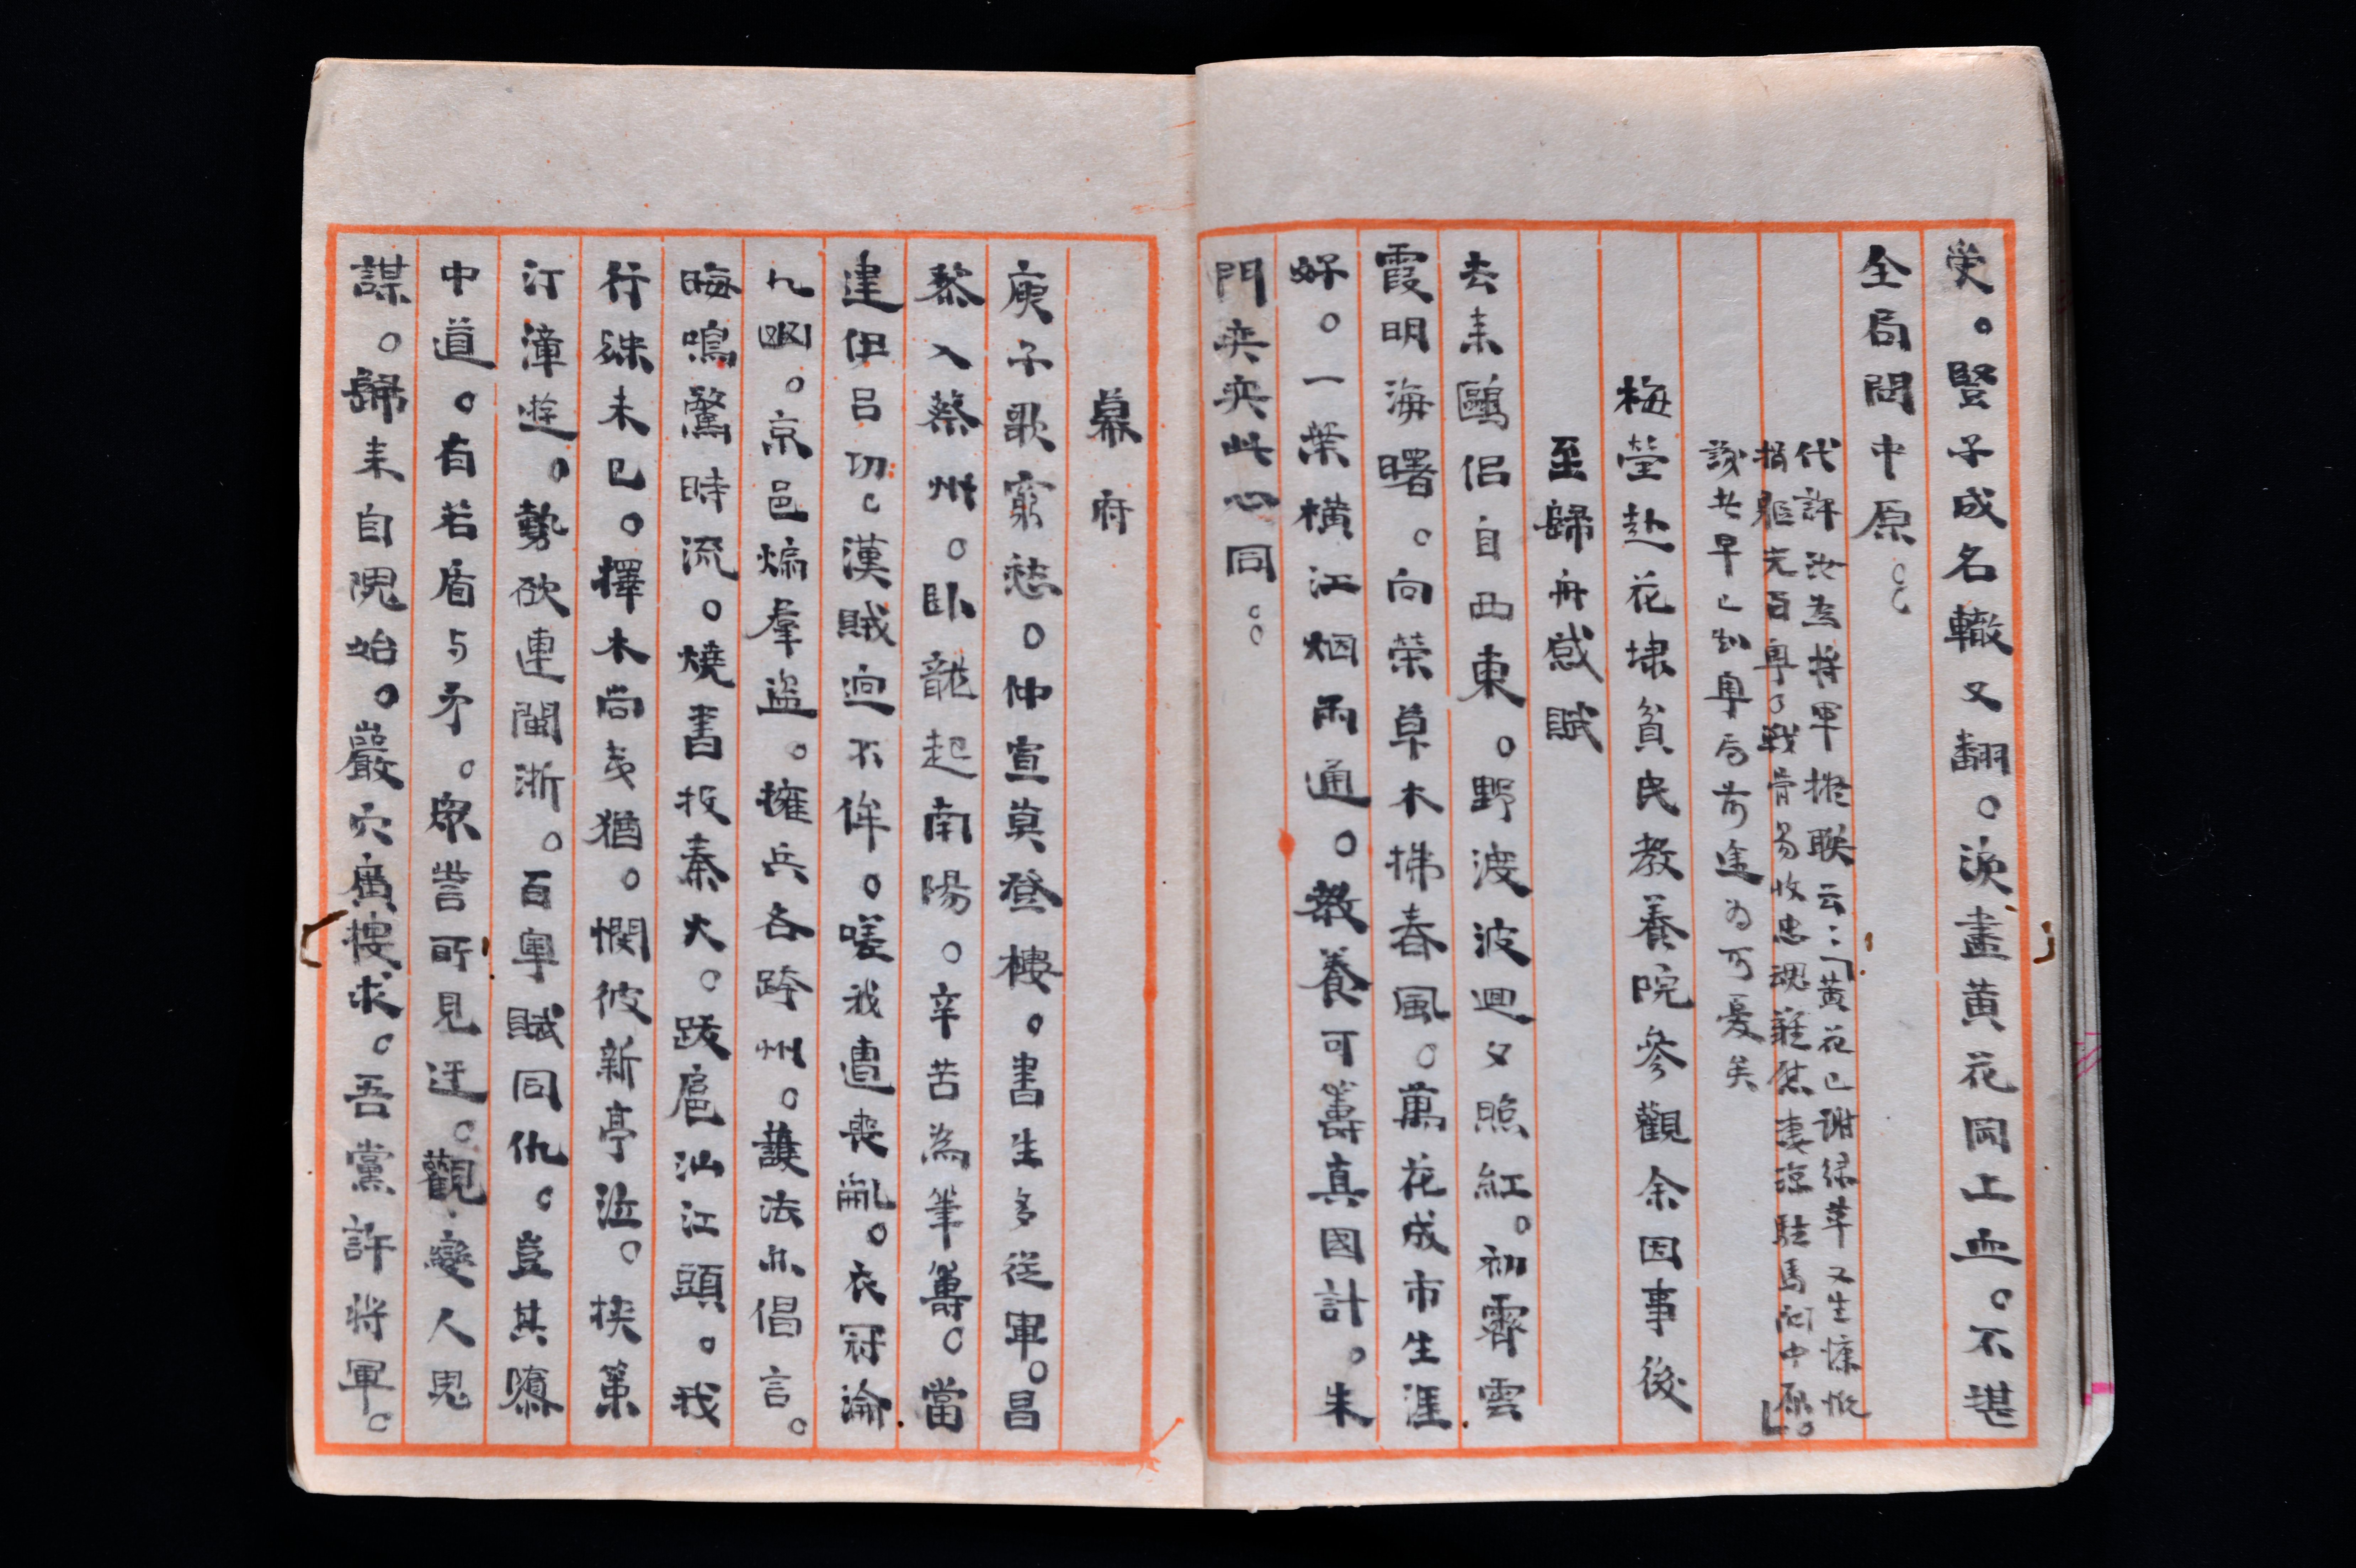 受。豎子成名轍又翻。淚盡黃花岡上血。不堪
全局問中原。。
代許汝為將軍挽聯云：「黃花已謝綠草又生慷慨
捐軀先百粵乃戰骨易收忠魂難慰淒涼駐馬問中原」。
識者早已知粵局前途為可憂矣
梅瑩赴花埭貧民教養院參觀余因事後
至歸舟感賦
去來鷗侶自西東。野渡波迴夕照紅。初霽雲
霞明海曙。向榮草木拂春風。萬花成市生涯
好。一葉橫江烟雨通。教養可籌真國計。朱
門奕奕此心同。。
幕府
庚子歌窮愁。仲宣莫登樓。書生多從軍。昌
黎入蔡州。臥龍起南陽。辛苦為筆籌。當
建伊呂功。漢賊迥不侔。嗟我遭喪亂。衣冠淪
九幽。京邑煽羣盜。擁兵各跨州。護法亦倡言。
晦鳴驚時流。燒書投秦火。跋扈汕江頭。我
行殊未已。擇木尚夷猶。憫彼新亭泣。挾策
汀漳遊。勢欲連閩浙。百粵賦同仇。豈其隳
中道。有若盾与矛。眾訾所見迂。觀變人思
謀。歸來自隗始。巖穴廣搜求。吾黨許將軍。